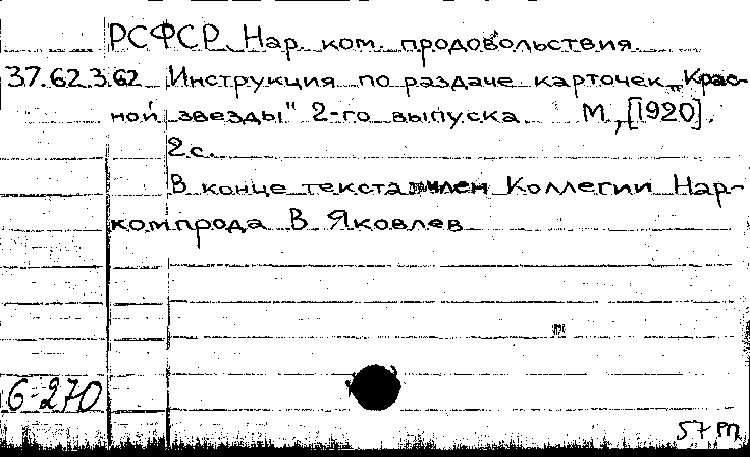 РСФСР. Нар. ком. продовольствия
37.62.3.62 Инструкция по раздаче карточек „Крас-
ной звезды" 2-го выпуска. М., [1920].
2 с.
В конце текста: член Коллегии Нар-
компрода В. Яковлев
6-270
57